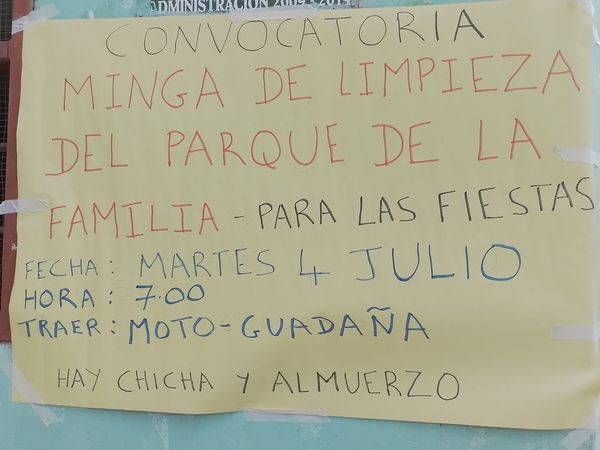 ADMINISTRACION 2009-2014
CONVOCATORIA
MINGA DE LIMPIEZA
DEL PARQUE DE LA
FAMILIA - PARA LAS FIESTAS
FECHA: MARTES 4 JULIO
HORA: 7.00
TRAER: MOTO-GUADAÑA
HAY CHICHA Y ALMUERZO